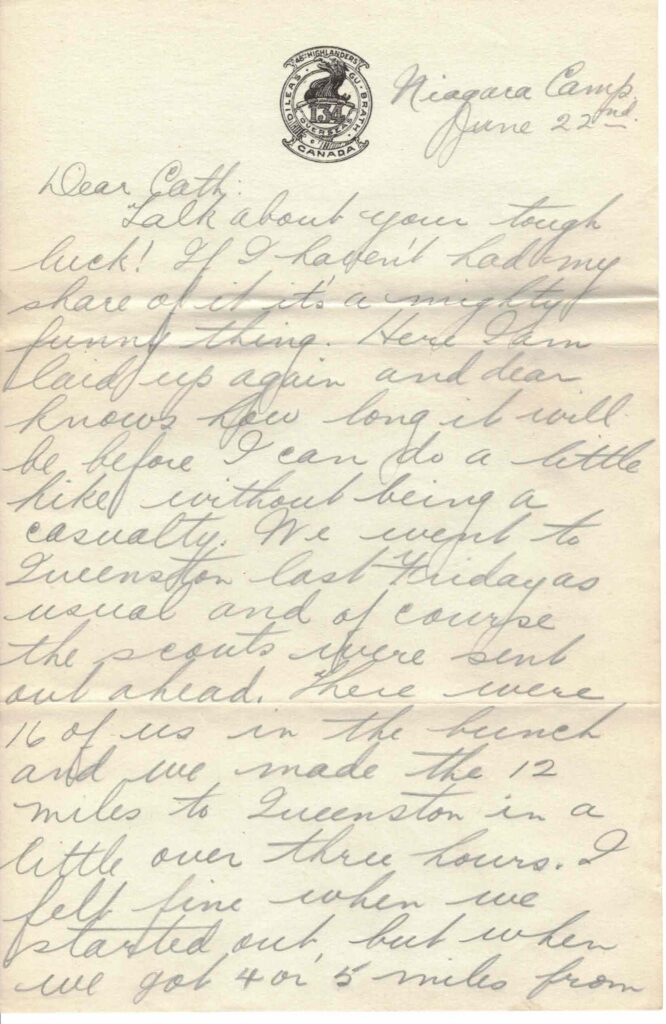 48TH HIGHLANDERS
DILEAS GU-BRATH
134
OVERSEAS
CANADA
Niagara Camp
June 22nd.
Dear Cath:
Talk about your tough
luck! If I haven't had my
share of it it's a mighty
funny thing. Here I am
laid up again and dear
knows how long it will
be before I can do a little
hike without being a
casualty. We went to
Queenston last Friday as
usual and of course
the scouts were sent
out ahead. There were
16 of us in the bunch
and we made the 12
miles to Queenston in a
little over three hours. I
felt fine when we
started out, but when
we got 4 or 5 miles from